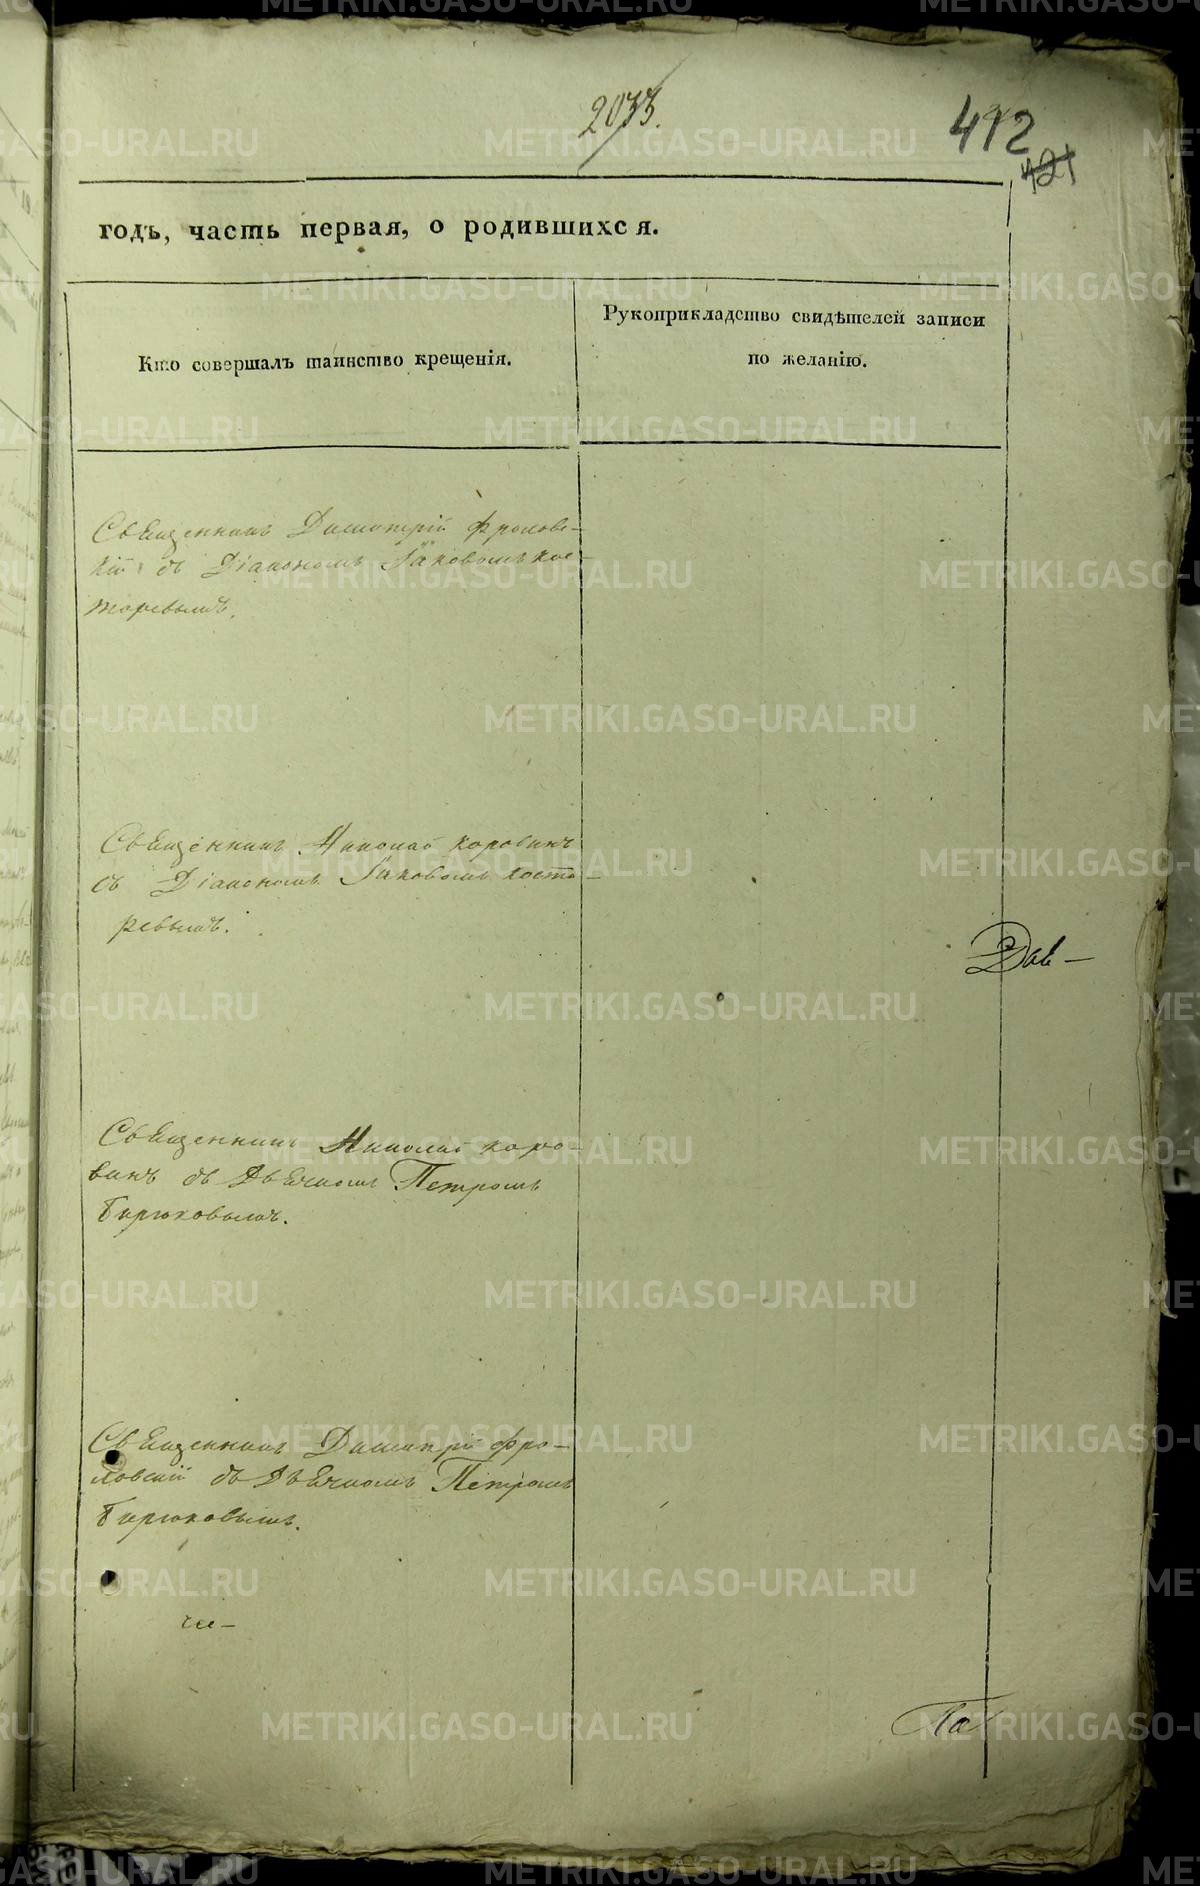 2033.
412
421
годъ, часть первая, о родившихся.
Кто совершалъ таинство крещенія.
Рукоприкладство свидѣтелей записи
по желанію.
Священникъ Димитрій Фролов-
кій съ Діакономъ Іаковомъ Кос-
торевымъ.
Священникъ Николай Коровинъ
съ Діакономъ Іаковомъ Косто-
ревымъ.
Дав-
Священникъ Николай Коро-
винъ съ Дьячкомъ Петромъ
Бирюковымъ.
Священникъ Димитрій Фро-
ловскій съ Дьячкомъ Петромъ
Бирюковымъ.
По
METRIKI.GASO-URAL.RU